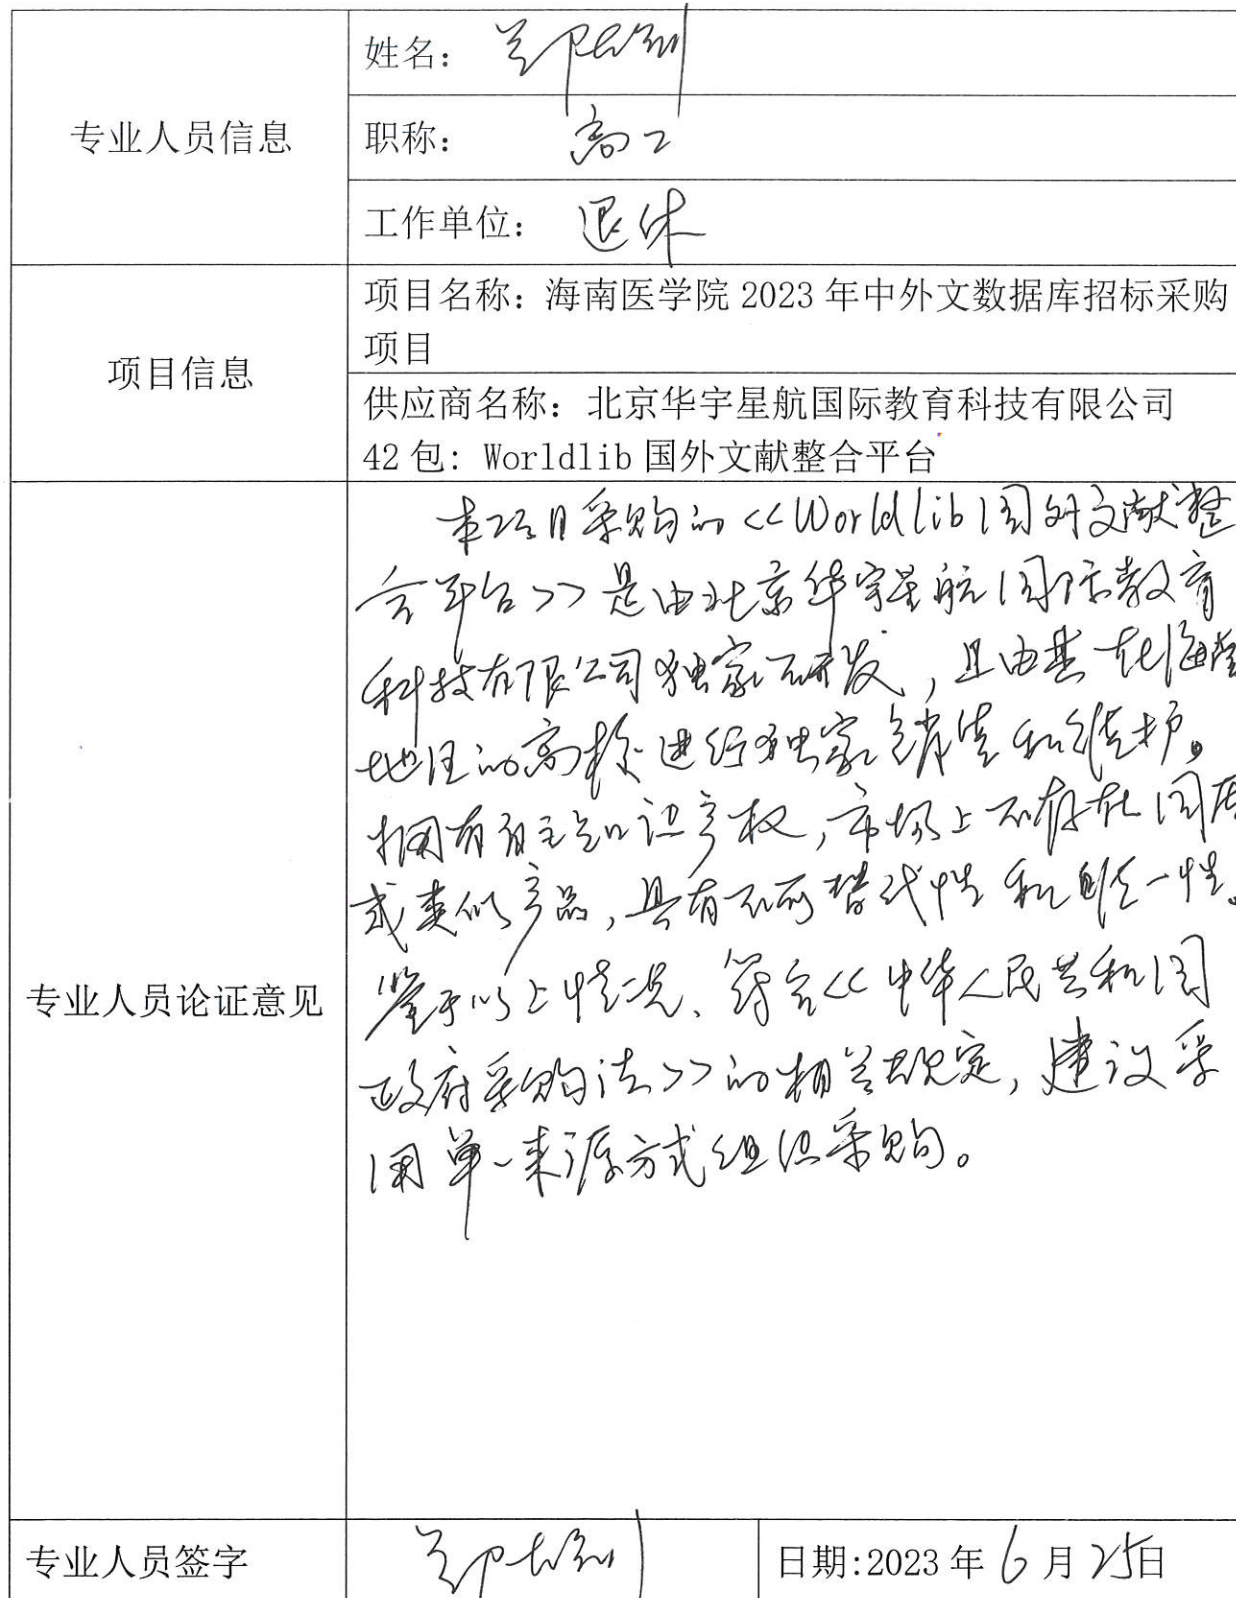 专业人员信息
姓名：郑
职称：高工
工作单位：退休
项目信息
项目名称：海南医学院 2023 年中外文数据库招标采购
项目
供应商名称：北京华宇星航国际教育科技有限公司
42 包: Worldlib 国外文献整合平台
专业人员论证意见
本项目采购的<<Worldlib国外文献整
合平台>>是由北京华宇星航国际教育
科技有限公司独家研发，且由其在海南
地区的高校进行独家销售和维护。
拥有自主知识产权，市场上不存在同
或类似产品，具有不可替代性和唯一性。
鉴于以上情况、符合<<中华人民共和国
政府采购法>>的相关规定，建议采
用单一来源方式组织采购。
专业人员签字
郑
日期:2023 年 6 月 25日